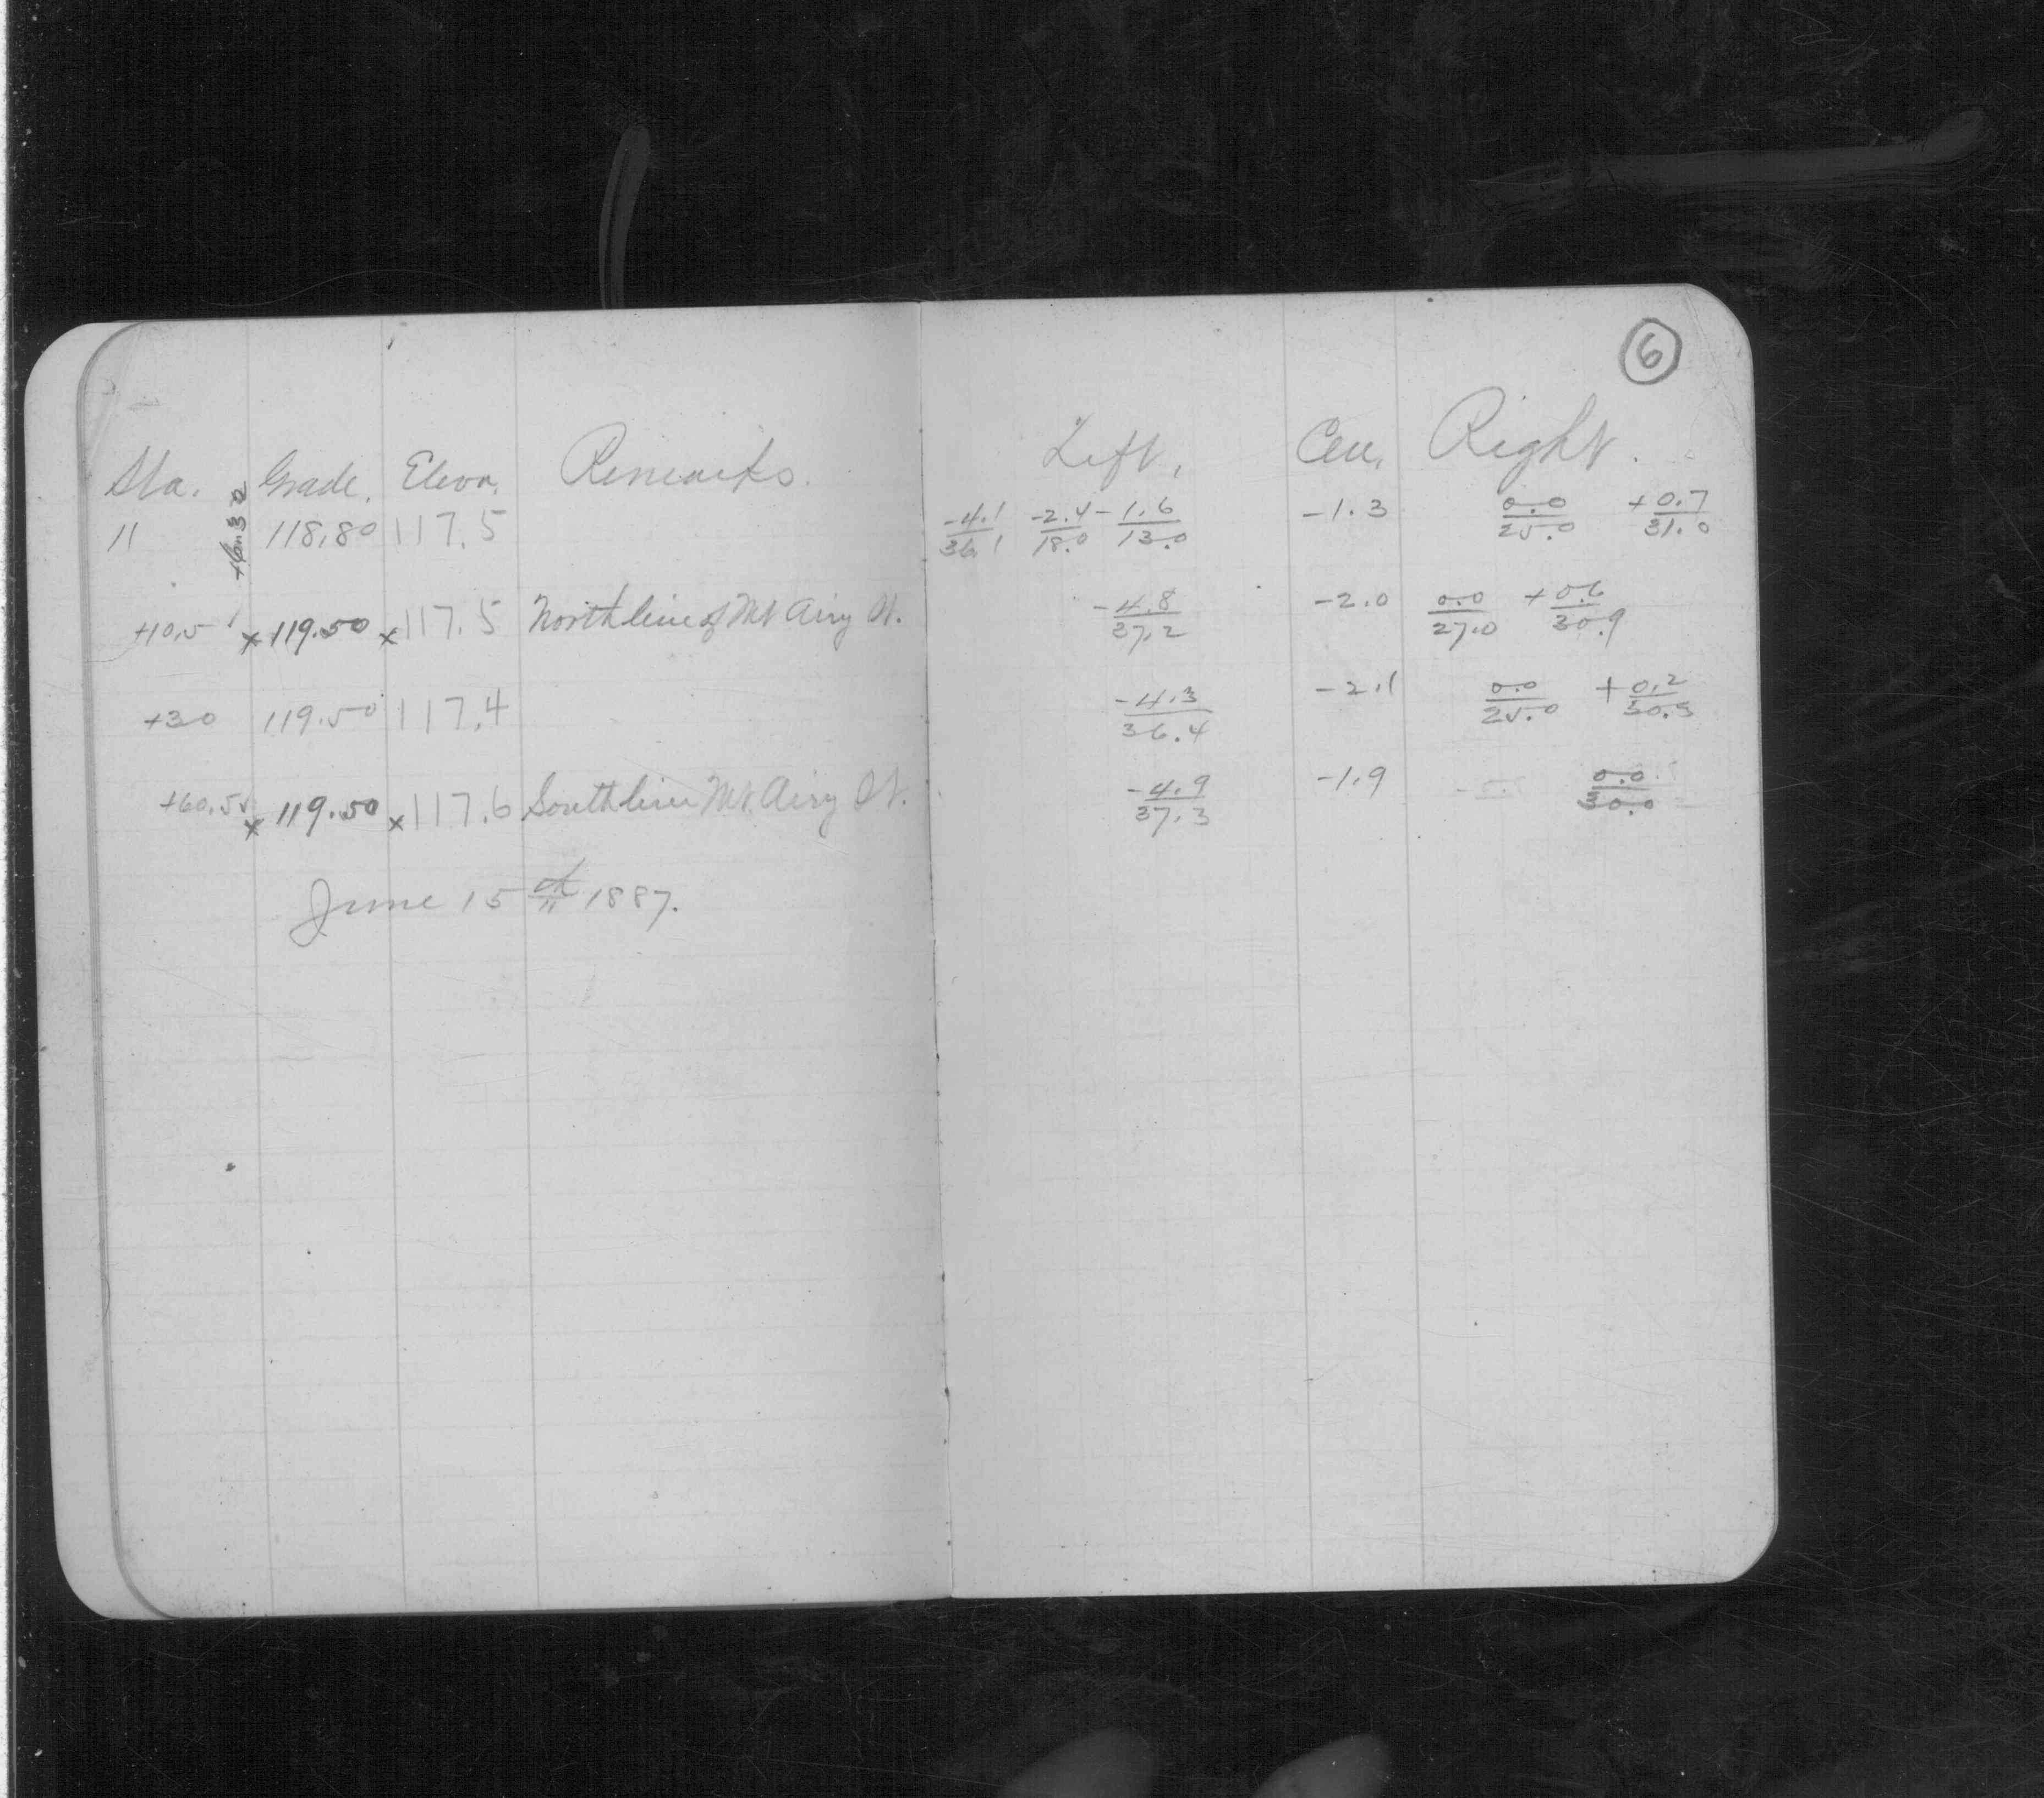 6
Sta. Grade. Eleva. Remarks. Left, Cen. Right.
11 118.80 117.5 -4.1/36.1 -2.4/18.0 -1.6/13.0 -1.3 0.0/25.0 +0.7/31.0
+10.5 x 119.50 x 117.5 North line of Mt Airy St. -4.8/37.2 -2.0 0.0/27.0 +0.6/30.9
+30 119.50 117.4 -4.3/36.4 -2.1 0.0/25.0 +0.2/30.3
+60.5 x 119.50 x 117.6 South line Mt. Airy St. -4.9/37.3 -1.9 0.0/30.0
June 15th 1887.